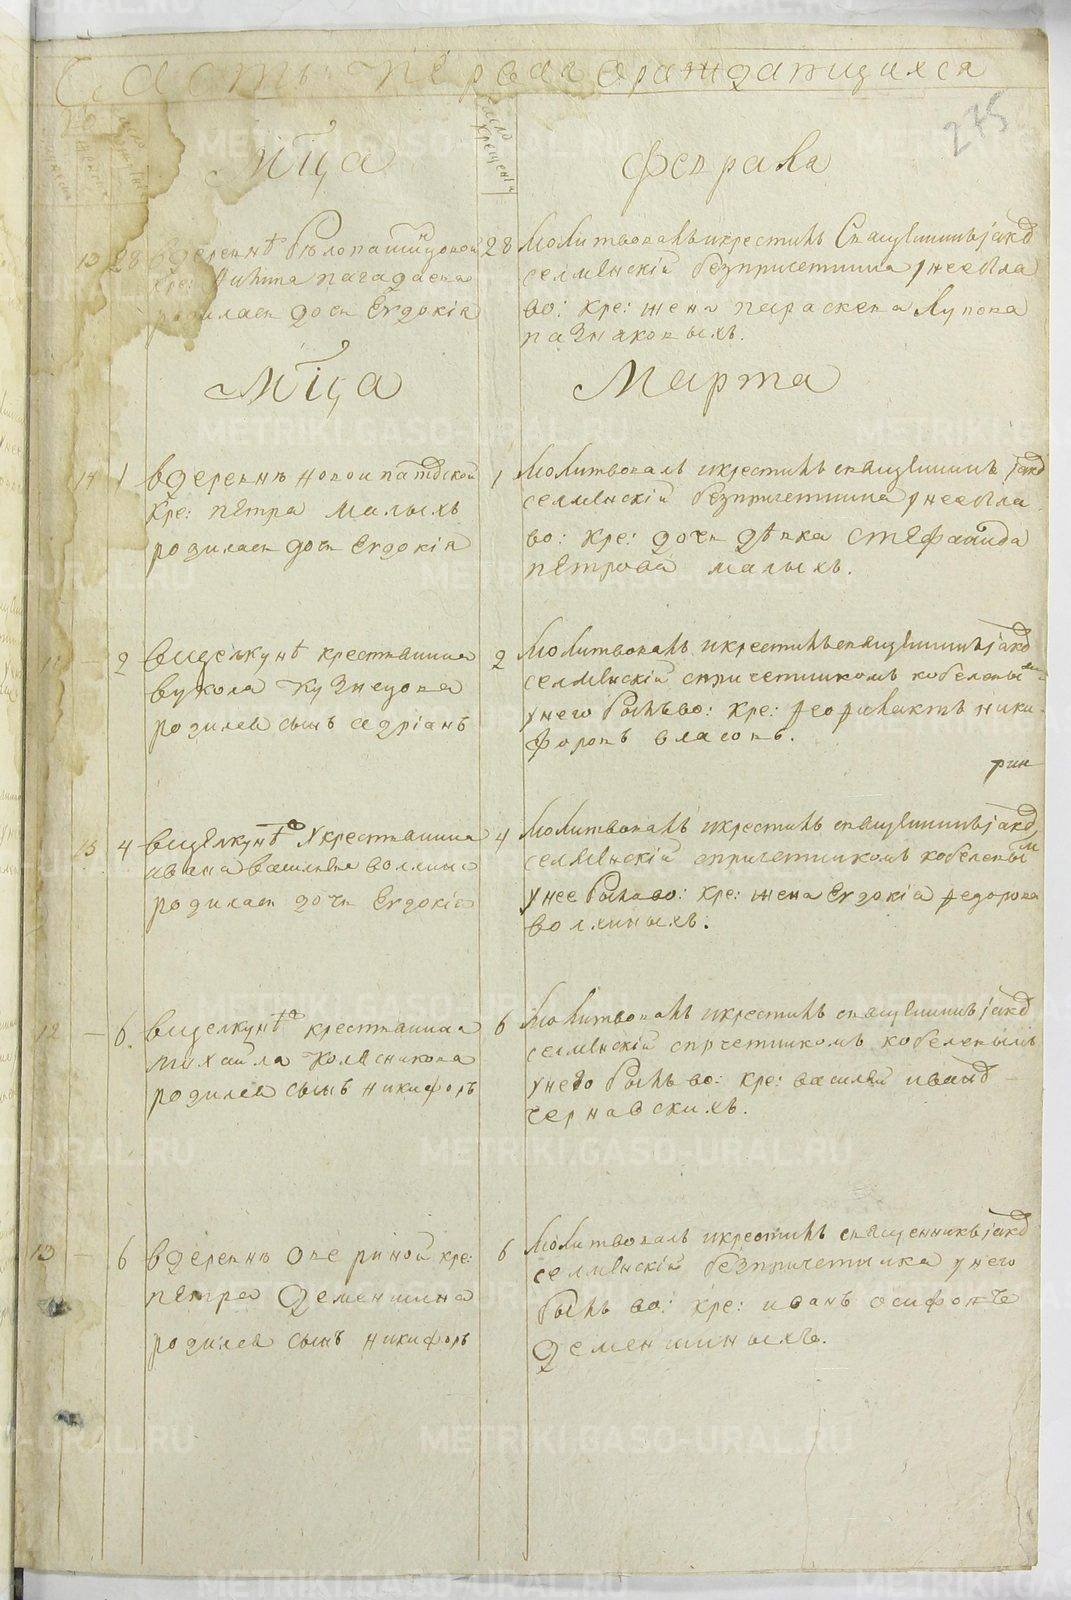 Часть первая о раждающихся
275
число крещенія
Мцⷭ҇а Февраля
13 28 в деревнѣ Белоносиговой
родилась дочь Евдокія
28 Молитвовалъ и крестилъ Священникъ Іаковъ
Селменскій безпричетника у нее была
во: кре: жена Параскева Лупова
Пазнаковыхъ.
Мцⷭ҇а Марта
14 1 в деревнѣ Новоипатовской
кре: Петра Малыхъ
родилась дочь Евдокія
1 Молитвовалъ и крестилъ священникъ Іаковъ
Селменскій безпричетника у нее была
во: кре: дочь девка Стефанида
Петрова Малыхъ.
2 в Щелкунѣ крестьянина
Вукола Кузнецова
родился сынъ Седріанъ
2 Молитвовалъ и крестилъ священникъ Іаковъ
Селменскій с причетникомъ Кобелевымъ
у него былъ во: кре: Феофилактъ Ники-
форовъ Власовъ.
15 4 в Щелкунѣ у крестьянина
Ивана Васильева Волкина
родилась дочь Евдокія
4 Молитвовалъ и крестилъ священникъ Іаковъ
Селменскій с причетникомъ Кобелевымъ
у нее была во: кре: жена Евдокія Федорова
12 6 в Щелкунѣ крестьянина
Михайла Колесникова
родился сынъ Никифоръ
6 Молитвовалъ и крестилъ священникъ Іаковъ
Селменскій с причетникомъ Кобелевымъ
у него былъ во: кре: Василей Иванов
Чернавскихъ.
13 6 в деревнѣ Авериной кре:
Петра Деменшина
родился сынъ Никифоръ
6 Молитвовалъ и крестилъ священникъ Іаковъ
Селменскій безпричетника у него
былъ во: кре: Иванъ Осифовъ
Деменшиныхъ.
METRIKI.GASO-URAL.RU